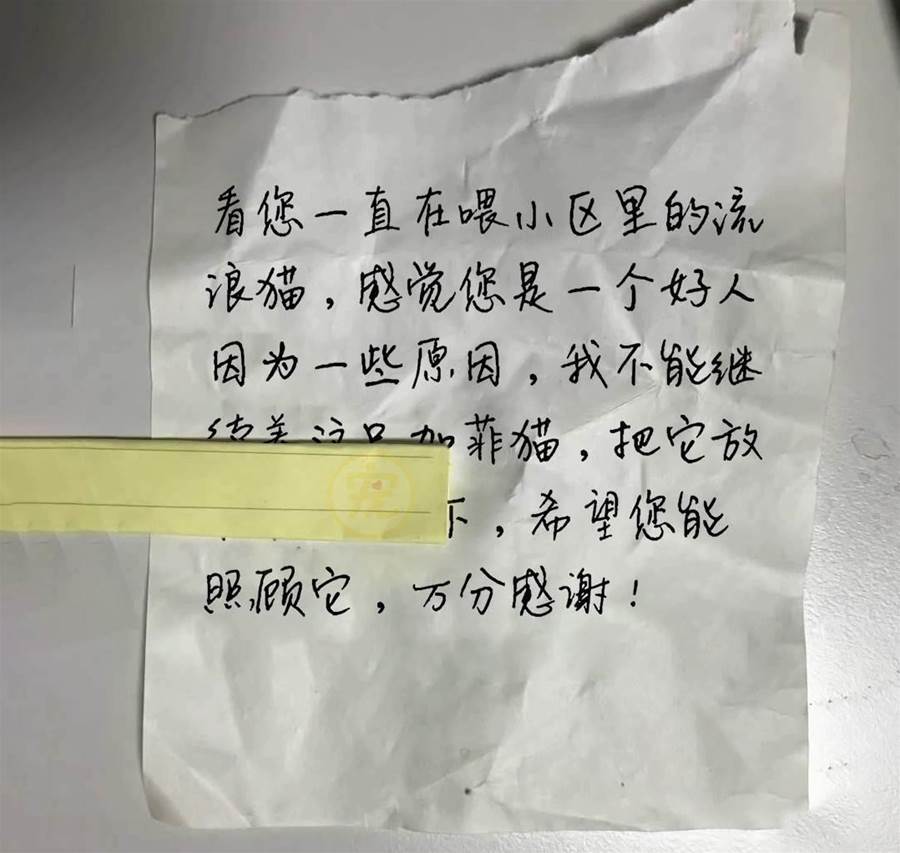 看您一直在喂小区里的流
浪猫，感觉您是一个好人
因为一些原因，我不能继
续养这只加菲猫，把它放
下，希望您能
照顾它，万分感谢！